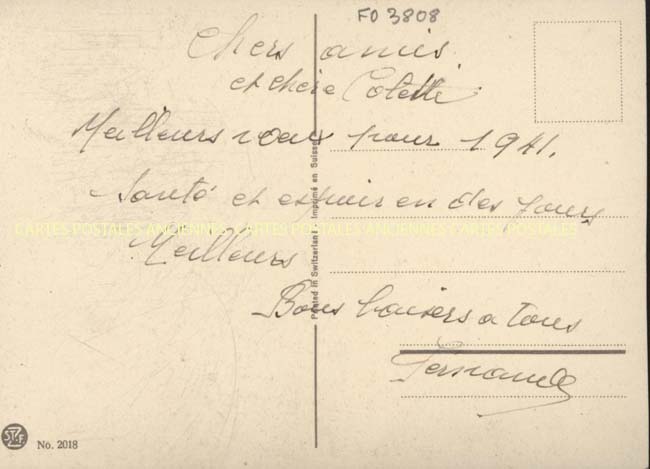 FO 3808
Chers amis
et chère Colette
Meilleurs vœux pour 1941.
Santé et espoir en des jours
CARTES POSTALES ANCIENNES CARTES POSTALES ANCIENNES CARTES POSTALES
Meilleurs
Bons baisers a tous
Fernande
Printed in Switzerland Imprimé en Suisse
No. 2018